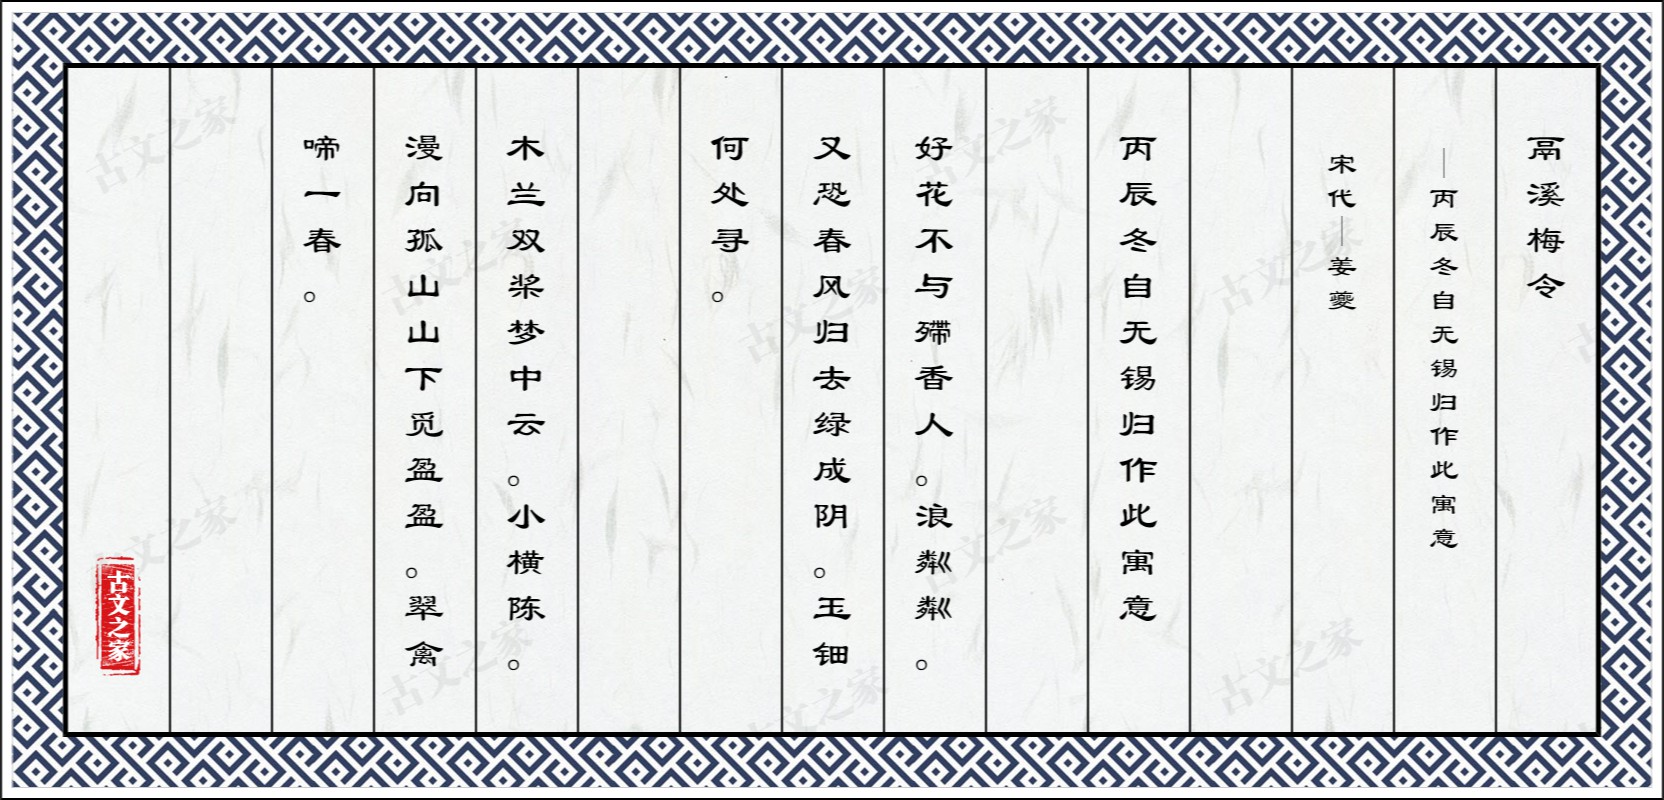 鬲溪梅令
—丙辰冬自无锡归作此寓意
宋代—姜夔
丙辰冬自无锡归作此寓意
好花不与殢香人。浪粼粼。
又恐春风归去绿成阴。玉钿
何处寻。
木兰双桨梦中云。小横陈。
漫向孤山山下觅盈盈。翠禽
啼一春。
古文之家